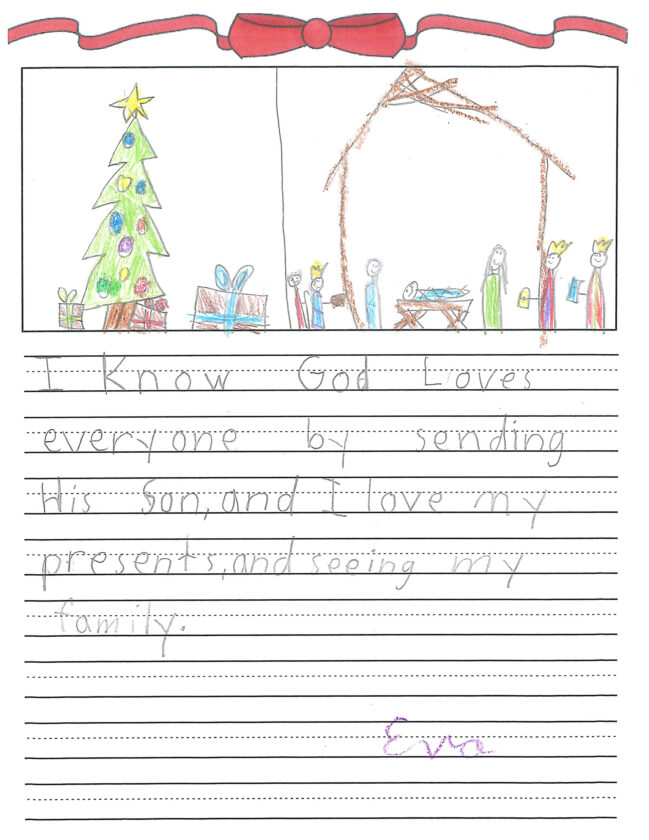 I Know God Loves
everyone by sending
His Son, and I love my
presents, and seeing my
family.
Eva